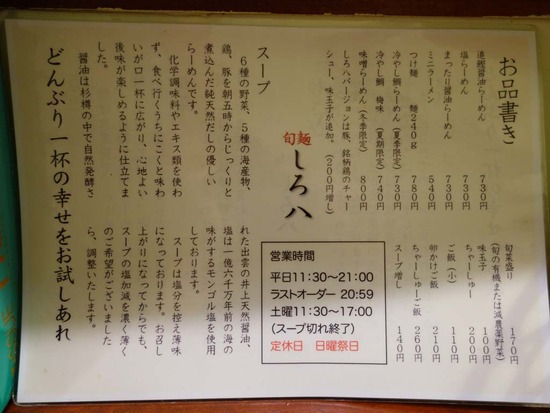 お品書き
追鰹醤油らーめん 730円
塩らーめん 730円
まったり醤油らーめん 730円
ミニラーメン 540円
つけ麺 麺240g 780円
冷やし鯛らーめん(夏季限定) 730円
冷やし鯛 梅味 (夏期限定) 740円
味噌らーめん(冬季限定) 800円
しろ八バージョンは豚、銘柄鶏のチャー
シュー、味玉子が追加。(200円増し)
旬菜盛り 170円
(旬の有機または減農薬野菜)
味玉子 100円
ちゃーしゅー 200円
ご飯(小) 110円
卵かけご飯 210円
ちゃーしゅーご飯 260円
スープ増し 140円
旬麺 しろ八
スープ
6種の野菜、5種の海産物、
鶏、豚を朝五時からじっくりと
煮込んだ純天然だしの優しい
らーめんです。
化学調味料やエキス類を使わ
ず、食べ行くうちにこくと味わ
いが口一杯に広がり、心地よい
後味が楽しめるように仕立てま
した。
醤油は杉樽の中で自然発酵さ
れた出雲の井上天然醤油、
塩は一億六千万年前の海の
味がするモンゴル塩を使用
しております。
スープは塩分を控え薄味
になっております。お召し
上がりになってからでも、
スープの塩加減を濃く薄く
のご希望がございました
ら、調整いたします。
どんぶり一杯の幸せをお試しあれ
営業時間
平日11:30~21:00
ラストオーダー 20:59
土曜11:30~17:00
(スープ切れ終了)
定休日 日曜祭日